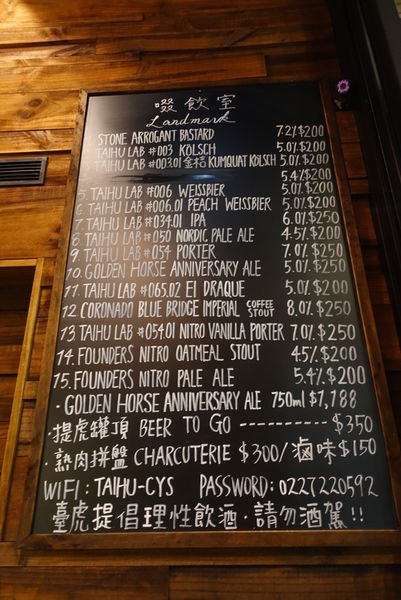 啜飲室
Landmark
STONE ARROGANT BASTARD 7.2% $200
TAIHU LAB #003 KÖLSCH 5.0% $200
TAIHU LAB #003.01 金桔 KUMQUAT KÖLSCH 5.0% $200
5.4% $200
5. TAIHU LAB #006 WEISSBIER 5.0% $200
6. TAIHU LAB #006.01 PEACH WEISSBIER 5.0% $200
7. TAIHU LAB #034.01 IPA 6.0% $250
8. TAIHU LAB #050 NORDIC PALE ALE 4.5% $200
9. TAIHU LAB #054 PORTER 7.0% $250
10. GOLDEN HORSE ANNIVERSARY ALE 5.0% $250
11. TAIHU LAB #065.02 El DRAQUE 5.0% $200
12. CORONADO BLUE BRIDGE IMPERIAL COFFEE STOUT 8.0% $250
13. TAIHU LAB #054.01 NITRO VANILLA PORTER 7.0% $250
14. FOUNDERS NITRO OATMEAL STOUT 4.5% $200
15. FOUNDERS NITRO PALE ALE 5.4% $200
· GOLDEN HORSE ANNIVERSARY ALE 750ml $7,788
· 提虎罐頂 BEER TO GO ---------- $350
· 熟肉拼盤 CHARCUTERIE $300/滷味 $150
WIFI : TAIHU-CYS PASSWORD: 0227220592
臺虎提倡理性飲酒·請勿酒駕!!